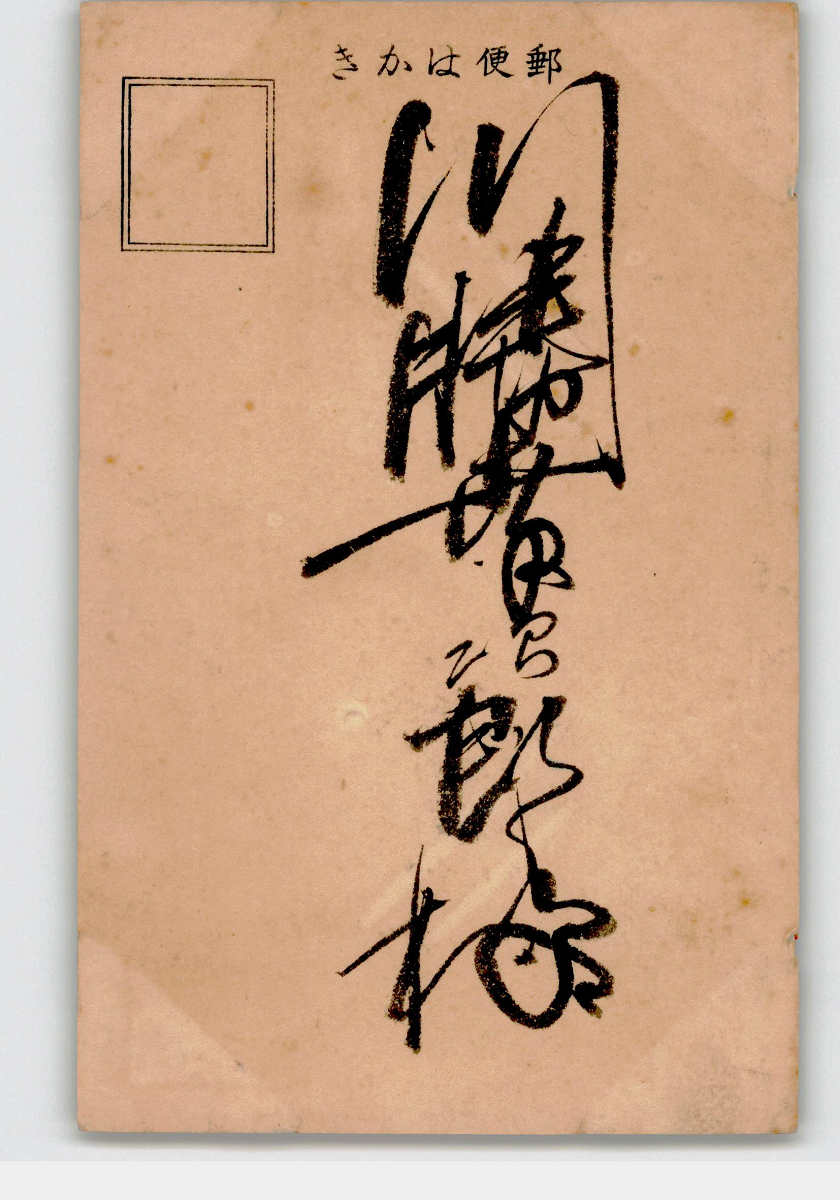 郵便はかき
川勝 郎様